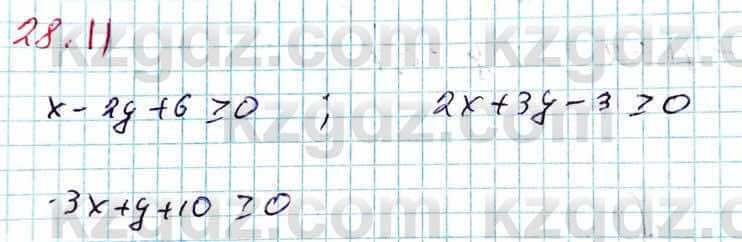 28.11
kzgdz.com kzgdz.com
x - 2y + 6 ≥ 0 ; 2x + 3y - 3 ≥ 0
kzgdz.com kzgdz.com
-3x + y + 10 ≥ 0
kzgdz.com kzgdz.com